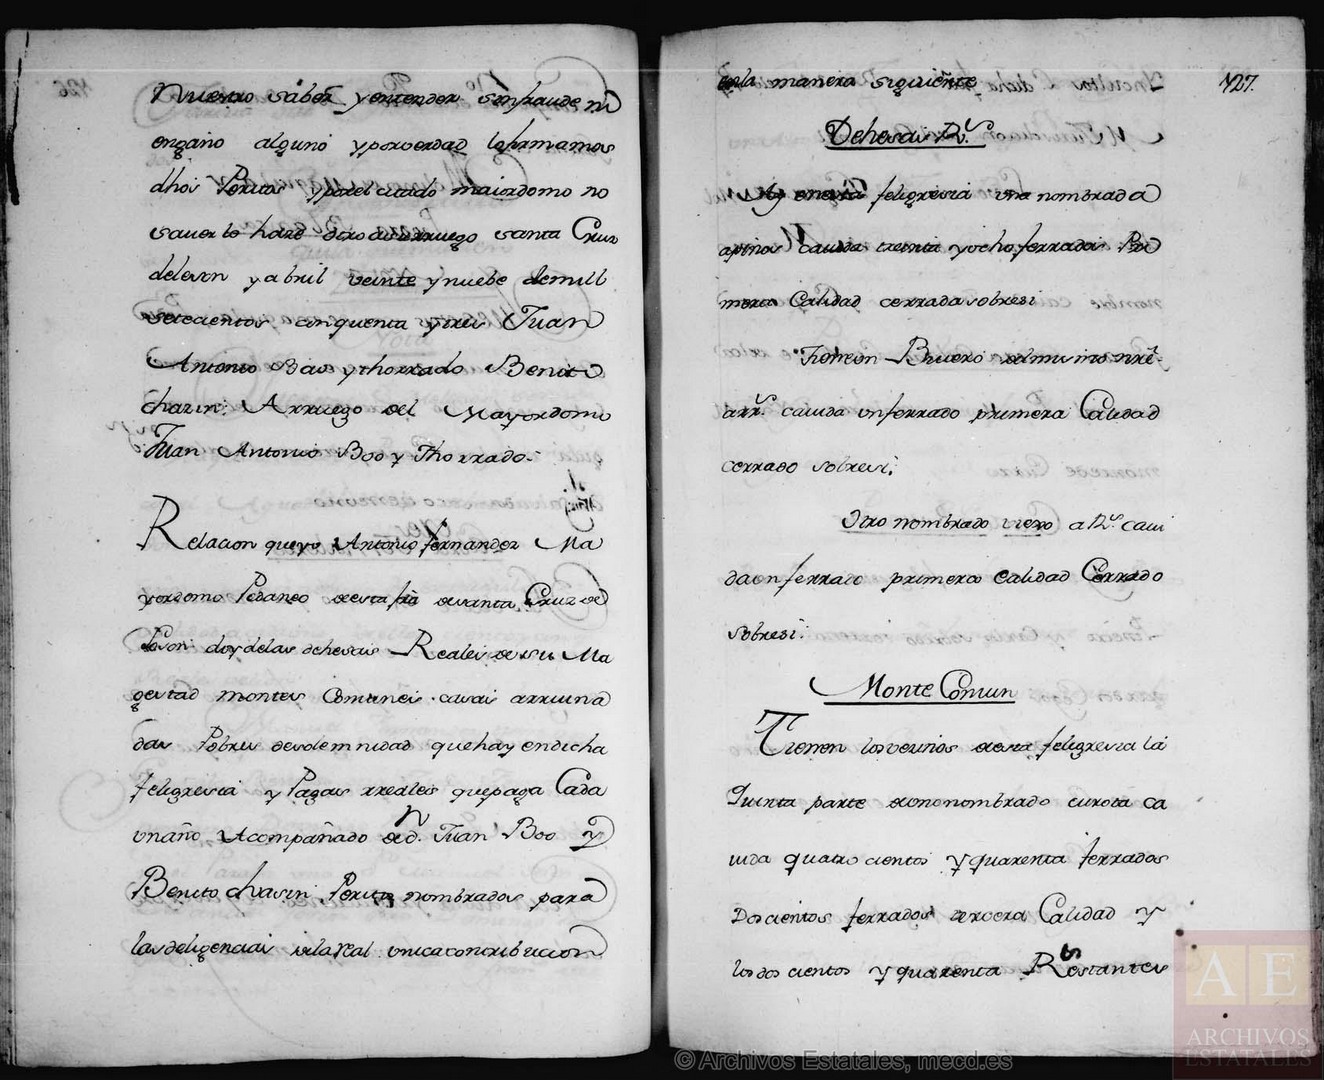 nuestro saber y entender sin fraude ni
engaño alguno y por verdad lo firmamos
dhos Peritos y por el citado maiordomo no
saver lo hazé otro asu rruego santa Cruz
de leson y abril veinte y nuebe de mill
setecientos cinquenta y tres Juan
Antonio Boo y thorrado Benito
chazin: A rruego del Mayordomo
Juan Antonio Boo y Thorrado:
Relacion que yo Antonio fernandez Ma
yordomo Pedaneo de esta fra de santa Cruz de
leson: doy de las dehesas Reales de su Ma
gestad montes Comunes casas arruina
das Pobres de solemnidad que hay en dicha
feligresia y Pagas rreales que paga Cada
un año Acompañado de dn. Juan Boo y
Benito chasin: Peritos nombrados para
las deligencias de la real unica contribucion
en la manera siguiente 427.
Dehesas Rs.
Ay en esta feligresia una nombrada
apinos Cavida treinta y ocho ferrados Pri
mera Calidad cerrada sobresi
Tienen Bivero del mismo nre.
arr. cavida un ferrado primera Calidad
cerrado sobresi:
Otro nombrado viero a Rs. cavi
da un ferrado primera Calidad Cerrado
sobresi:
Monte Comun
Tienen los vecinos de esta feligresia la
Quinta parte de uno nombrado curota ca
vida quatro cientos y quarenta ferrados
Doscientos ferrados tercera Calidad y
los dos cientos y quarenta Restantes
AE
ARCHIVOS
ESTATALES
© Archivos Estatales, mecd.es